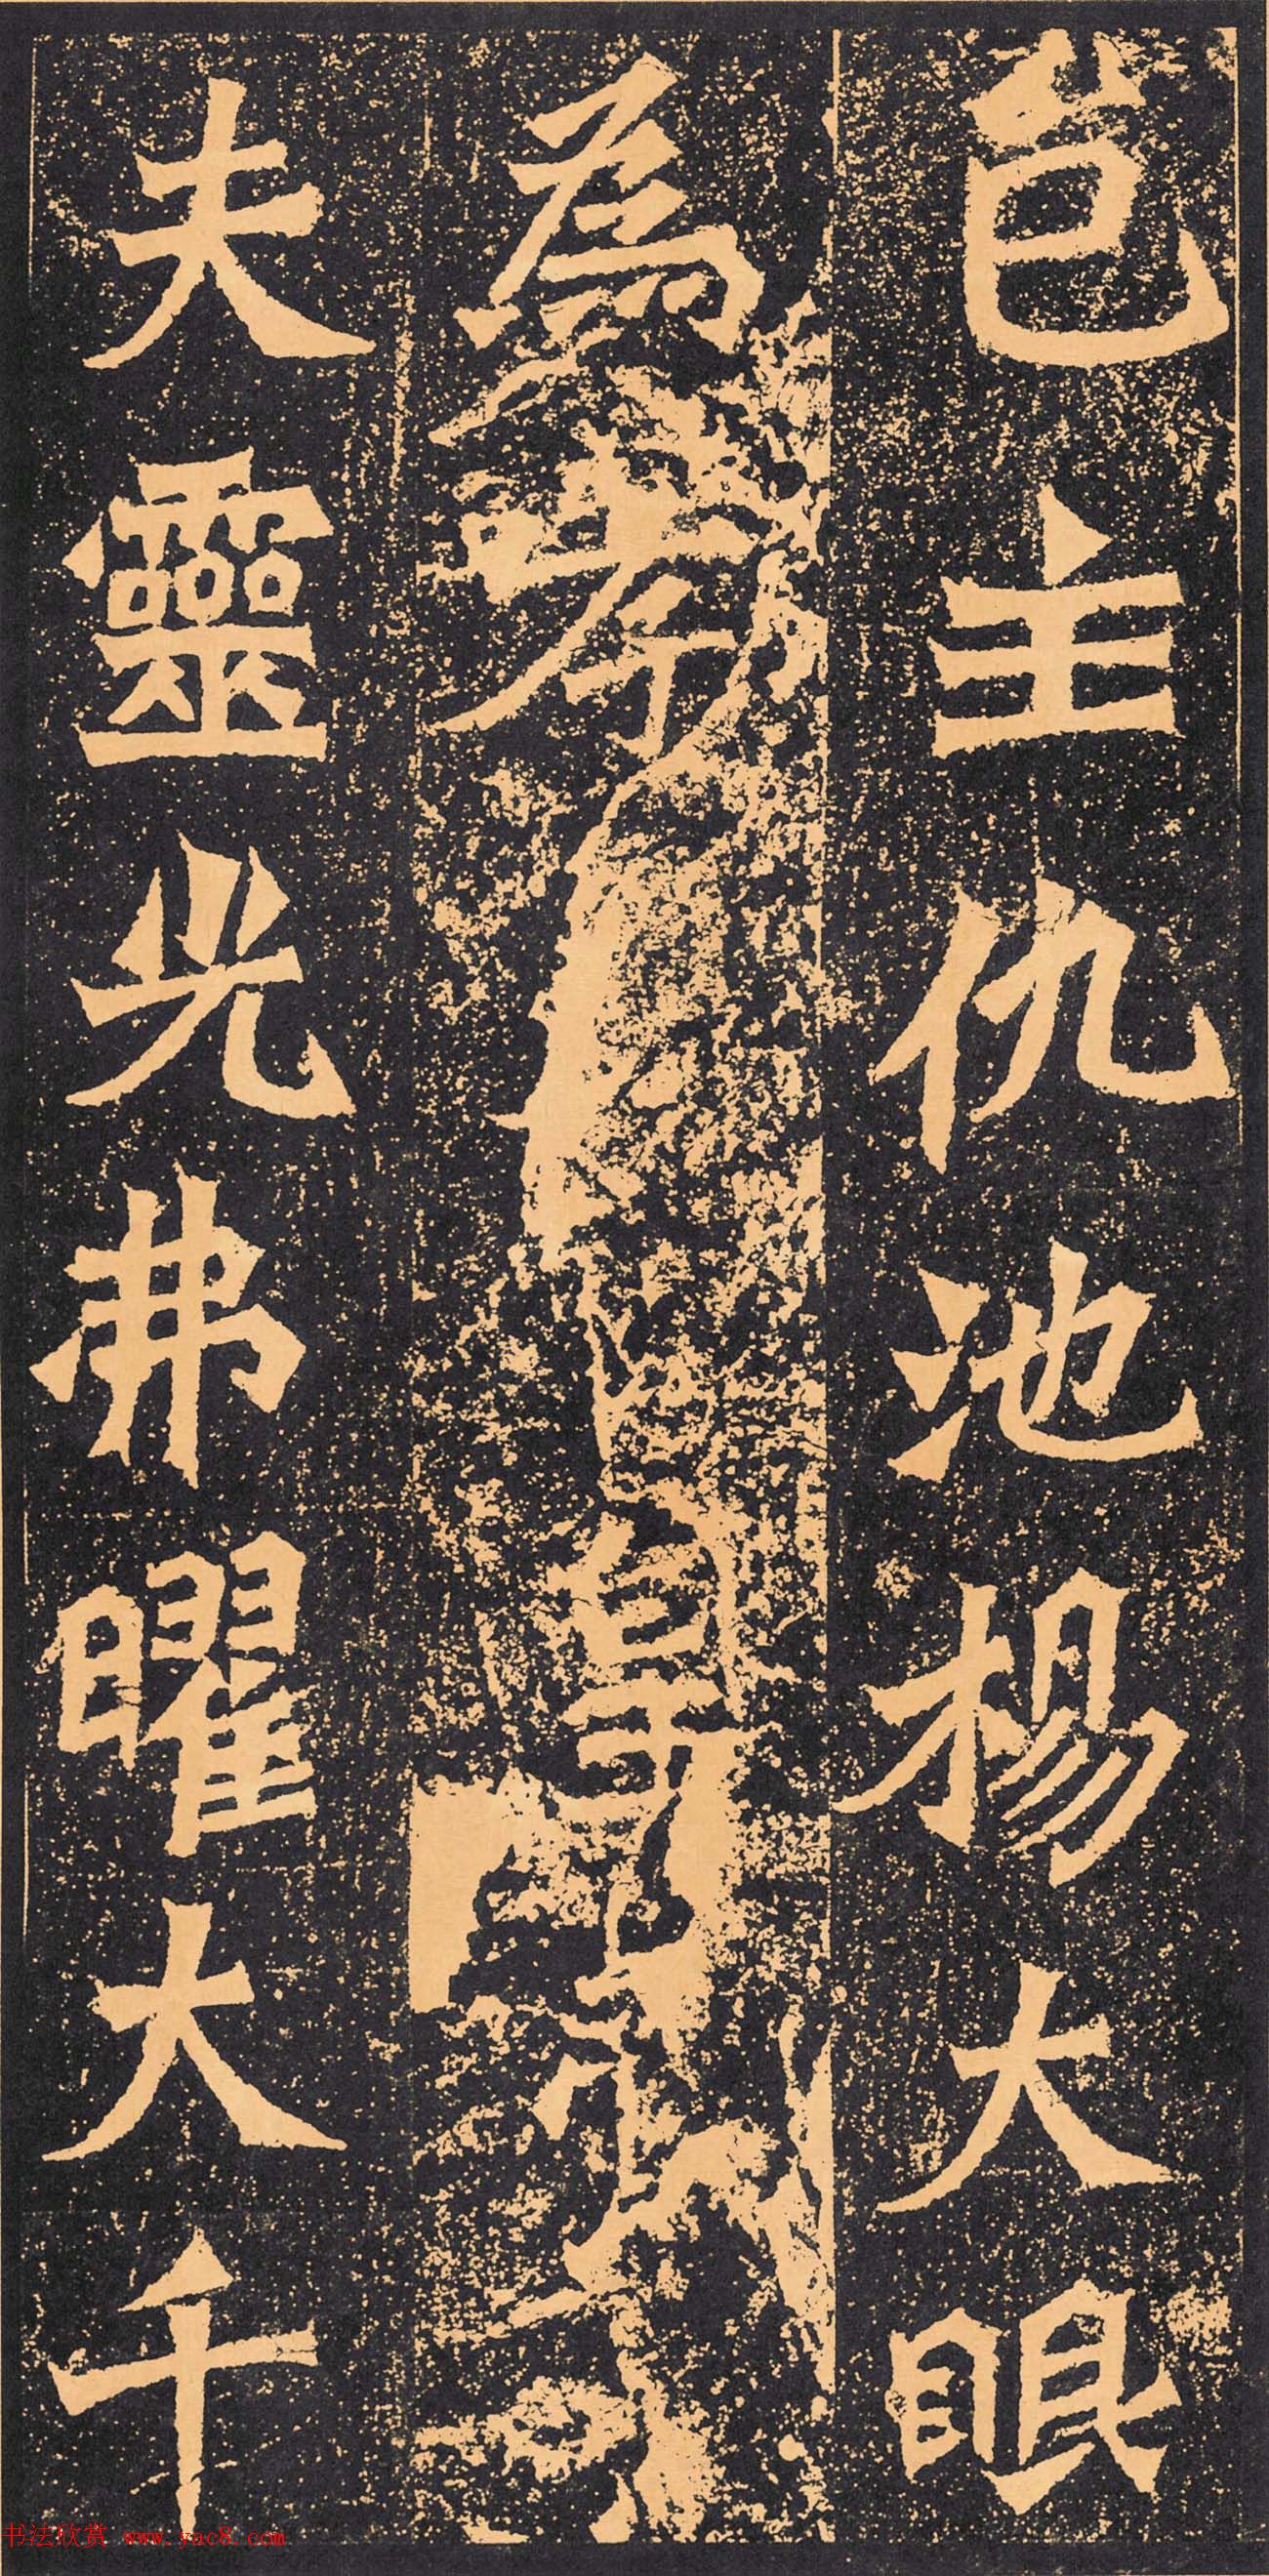 邑主仇池楊大眼
為孝
皇帝
夫靈光弗曜大千
书法欣赏 www.yac8.com